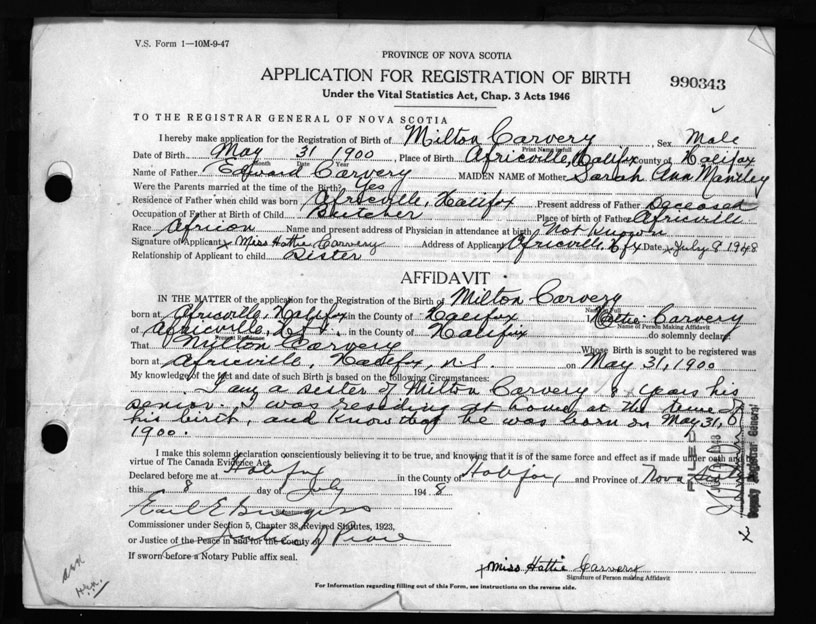 V.S. Form 1—10M-9-47
PROVINCE OF NOVA SCOTIA
APPLICATION FOR REGISTRATION OF BIRTH 990343
Under the Vital Statistics Act, Chap. 3 Acts 1946
TO THE REGISTRAR GENERAL OF NOVA SCOTIA
I hereby make application for the Registration of Birth of Milton Carvery, Sex Male
Print Name in full
Date of Birth May 31 1900, Place of Birth Africville, Halifax County of Halifax
Month Date Year
Name of Father Edward Carvery MAIDEN NAME of Mother Sarah Ann Mantley
Were the Parents married at the time of the Birth? Yes
Residence of Father when child was born Africville, Halifax Present address of Father Deceased
Occupation of Father at Birth of Child Butcher Place of birth of Father Africville
Race African Name and present address of Physician in attendance at birth Not known
Signature of Applicant x Miss Hattie Carvery Address of Applicant Africville, Hfx Date x July 8 1948
Relationship of Applicant to child Sister
AFFIDAVIT
IN THE MATTER of the application for the Registration of the Birth of Milton Carvery
Name in Full
born at Africville, Halifax in the County of Halifax Hattie Carvery
Name of Person Making Affidavit
of Africville, in the County of Halifax do solemnly declare:
Present Residence
That Milton Carvery Whose Birth is sought to be registered was
born at Africville, Halifax, N.S. on May 31, 1900
My knowledge of the fact and date of such Birth is based on the following Circumstances:
I am a sister of Milton Carvery 8 years his
senior. I was residing at home at the time of
his birth, and know that he was born on May 31,
1900.
I make this solemn declaration conscientiously believing it to be true, and knowing that it is of the same force and effect as if made under oath and
virtue of The Canada Evidence Act.
Declared before me at Halifax in the County of Halifax, and Province of Nova Scotia
this 8 day of July 1948
Earl E Burgess
Commissioner under Section 5, Chapter 38, Revised Statutes, 1923,
or Justice of the Peace in and for the County of Justice of Peace
If sworn before a Notary Public affix seal.
x Miss Hattie Carvery
Signature of Person making Affidavit
For Information regarding filling out of this Form, see instructions on the reverse side.
FILED
Deputy Registrar General